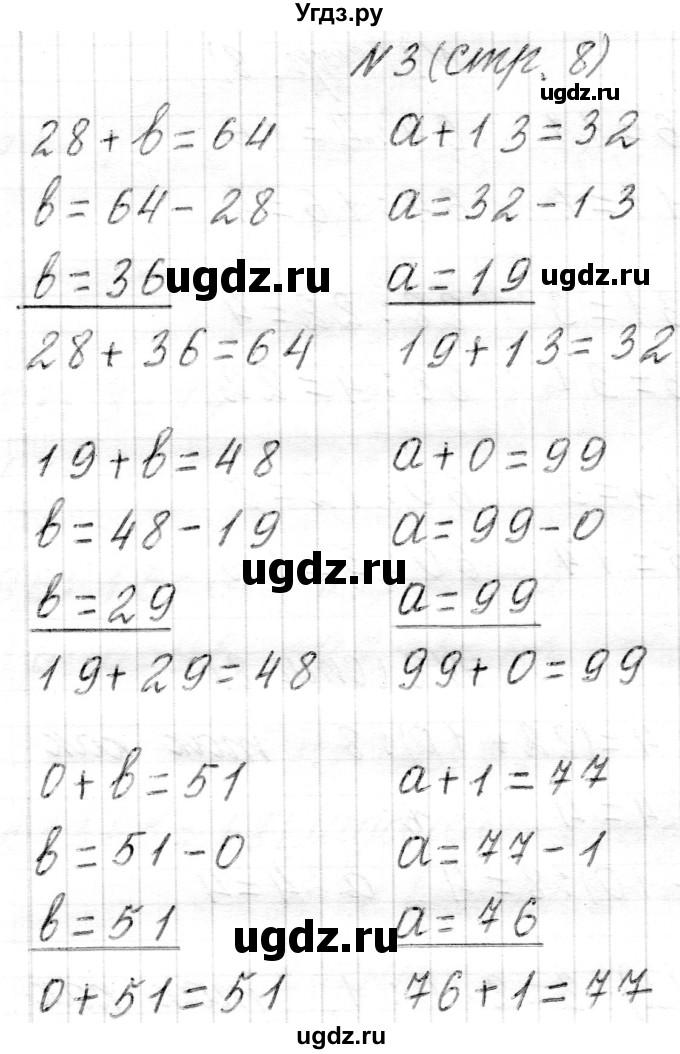 Угдз.ру
N 3 (стр. 8)
ugdz.ru
28 + в = 64
в = 64 - 28
в = 36
ugdz.ru
28 + 36 = 64
a + 13 = 32
a = 32 - 13
a = 19
ugdz.ru
19 + 13 = 32
19 + в = 48
в = 48 - 19
в = 29
19 + 29 = 48
ugdz.ru
a + 0 = 99
a = 99 - 0
a = 99
99 + 0 = 99
0 + в = 51
в = 51 - 0
в = 51
0 + 51 = 51
ugdz.ru
a + 1 = 77
a = 77 - 1
a = 76
76 + 1 = 77
ugdz.ru